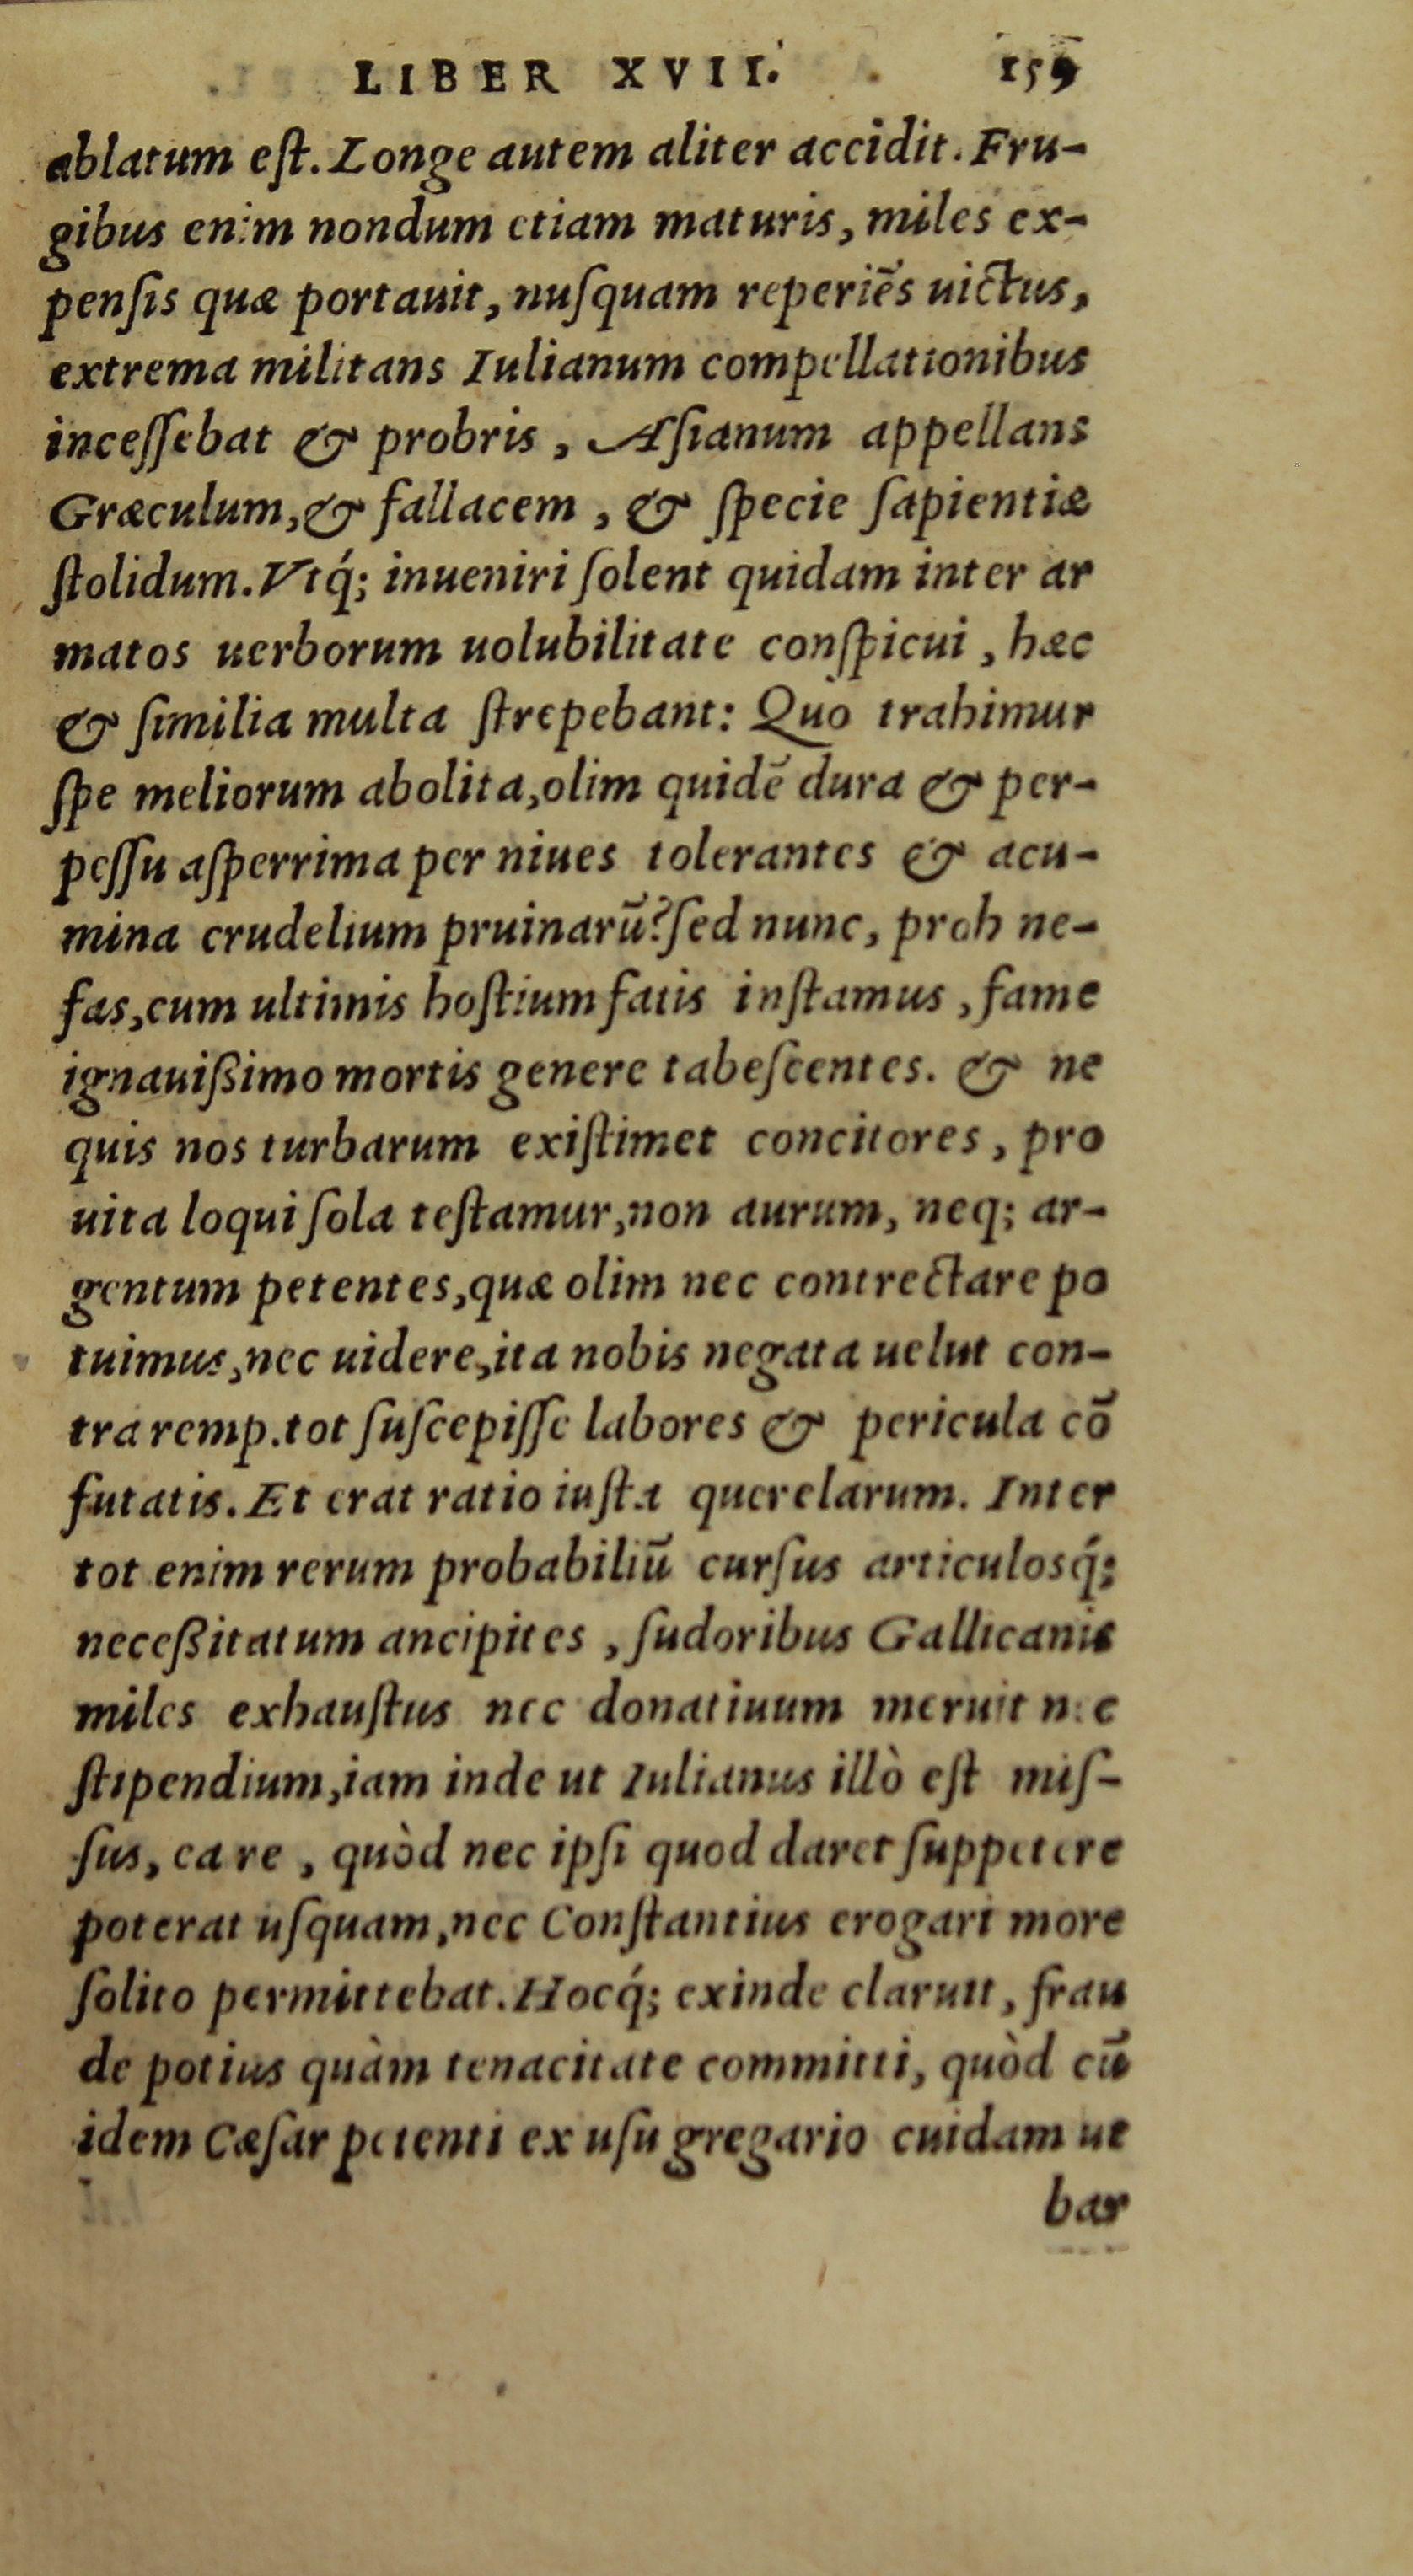 LIBER XVII. 159
ablatum eſt. Longe autem aliter accidit. Fru-
gibus enim nondum etiam maturis, miles ex-
penſis quæ portauit, nuſquam reperiẽs uictus,
extrema militans Iulianum compellationibus
inceſſebat & probris, Aſianum appellans
Græculum, & fallacem, & ſpecie ſapientiæ
ſtolidum. Vtq́; inueniri ſolent quidam inter ar
matos uerborum uolubilitate conſpicui, hæc
& ſimilia multa ſtrepebant: Quò trahimur
ſpe meliorum abolita, olim quidẽ dura & per-
peſſu aſperrima per niues tolerantes & acu-
mina crudelium pruinarũ? ſed nunc, proh ne-
fas, cum ultimis hoſtium fatis inſtamus, fame
ignauißimo mortis genere tabeſcentes. & ne
quis nos turbarum exiſtimet concitores, pro
uita loqui ſola teſtamur, non aurum, neq; ar-
gentum petentes, quæ olim nec contrectare po
tuimus, nec uidere, ita nobis negata uelut con-
tra remp. tot ſuſcepiſſe labores & pericula cõ
futatis. Et erat ratio iuſta querelarum. Inter
tot enim rerum probabiliũ curſus articulosq́;
neceßitatum ancipites, ſudoribus Gallicanis
miles exhauſtus nec donatiuum meruit nec
ſtipendium, iam inde ut Iulianus illò eſt miſ-
ſus, ea re, quòd nec ipſi quod daret ſuppetere
poterat uſquam, nec Conſtantius erogari more
ſolito permittebat. Hocq́; exinde claruit, frau
de potius quàm tenacitate committi, quòd cũ
idem Cæſar petenti ex uſu gregario cuidam ut
bar